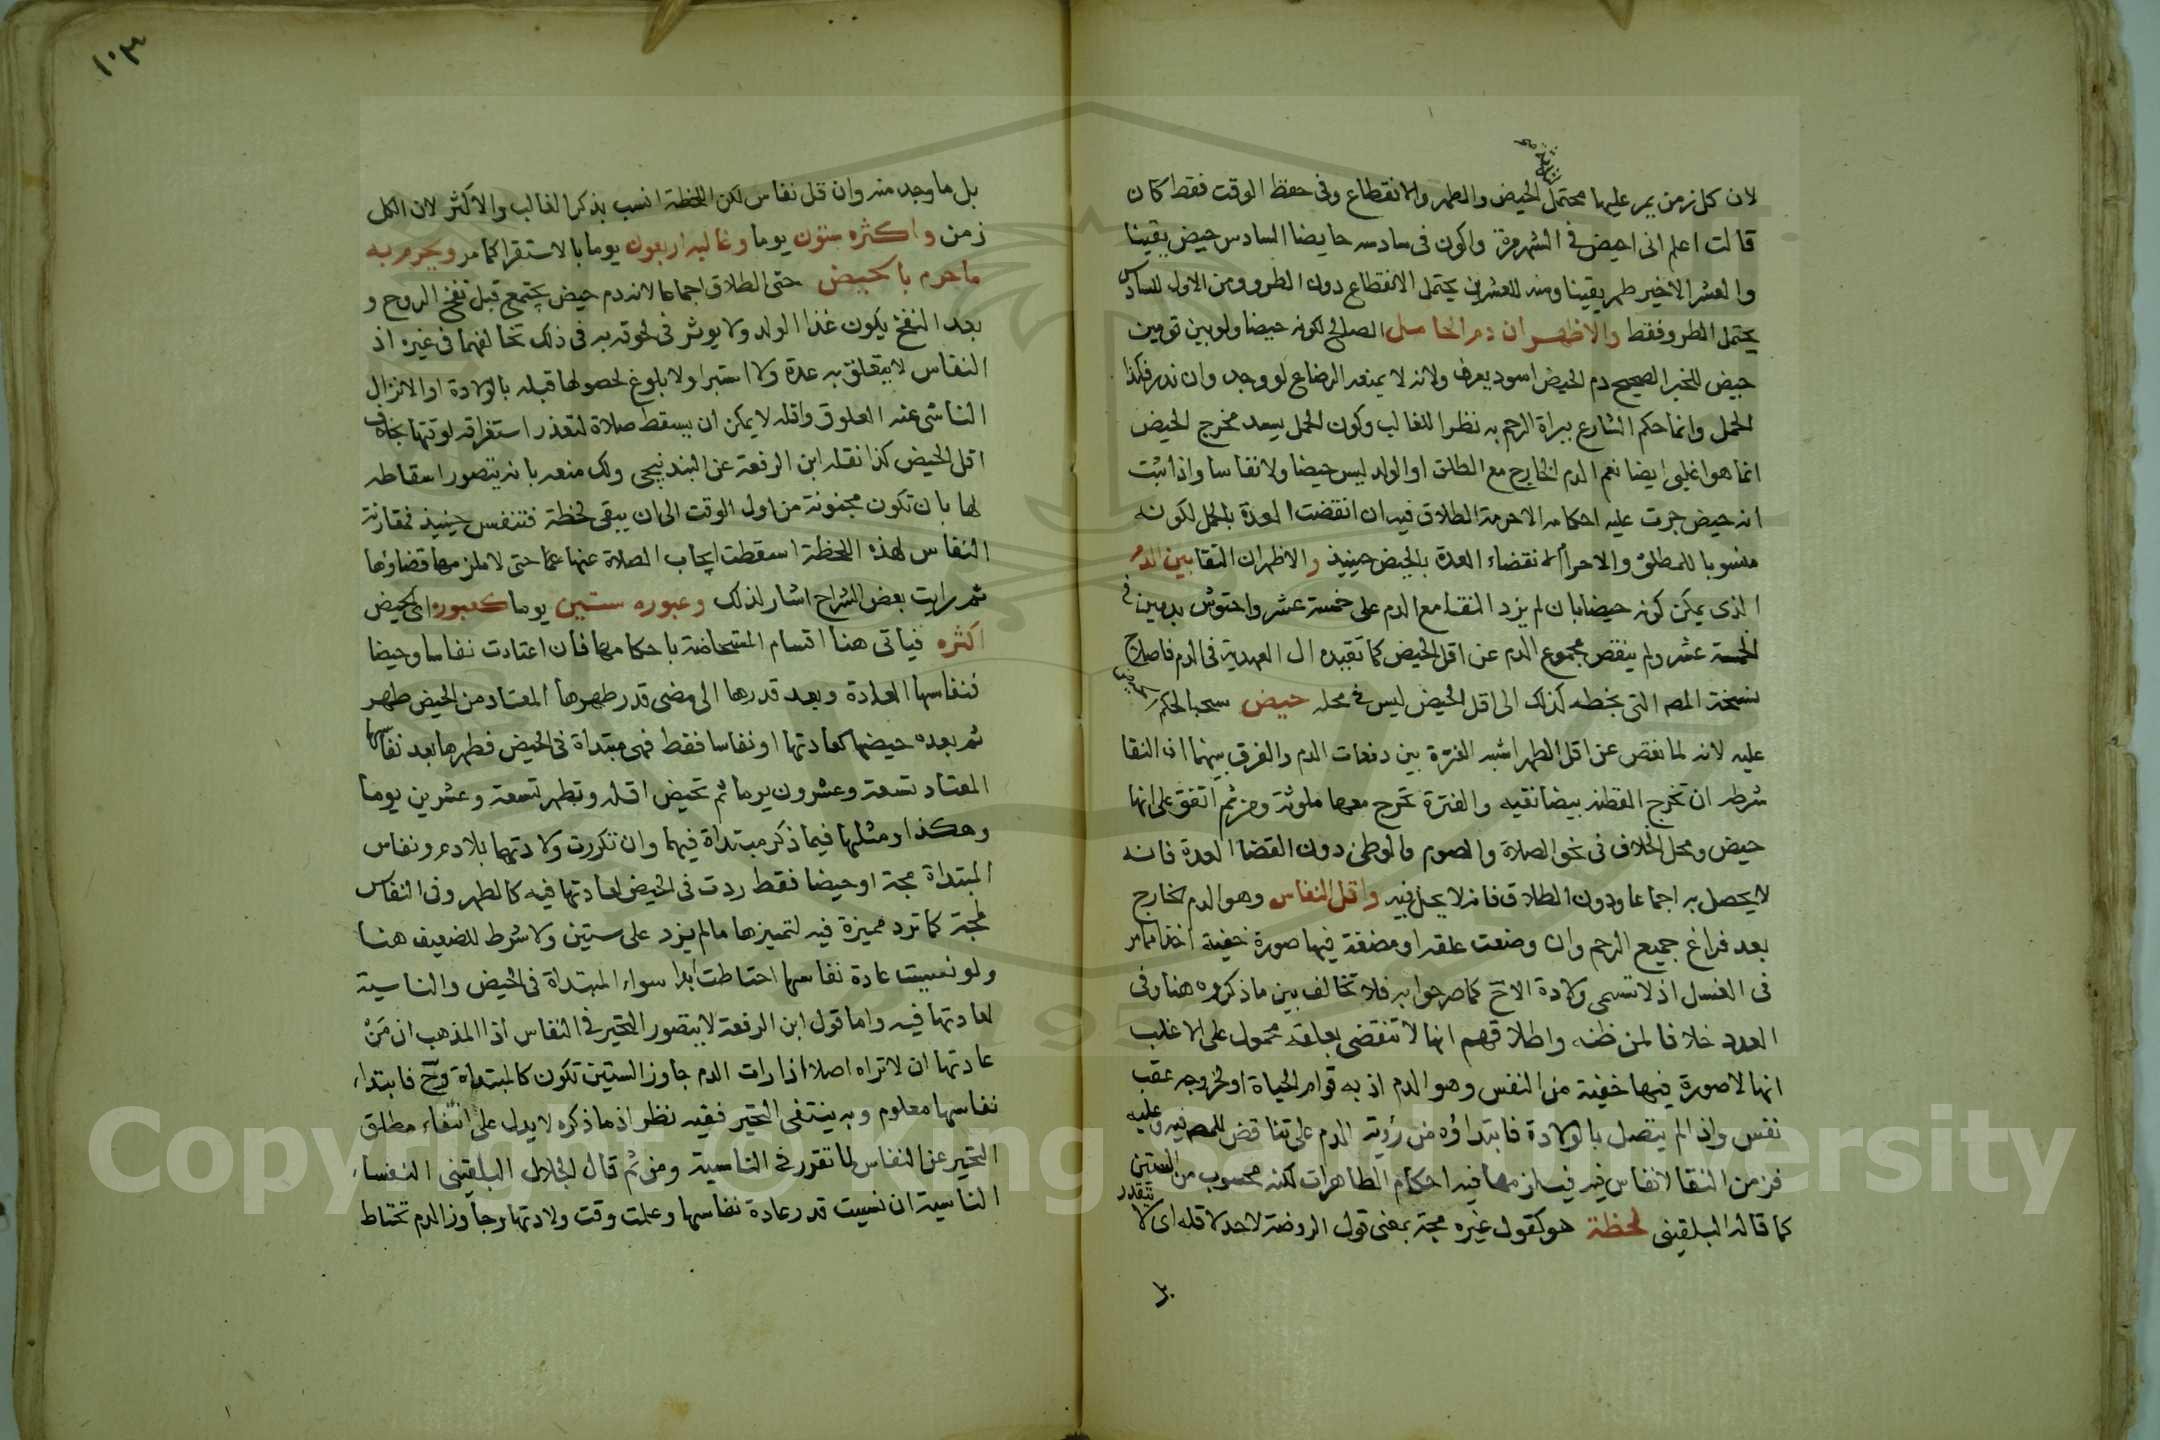 لان كل زمن يمر عليها محتمل الحيض والطهر والانقطاع وفي حفظ الوقت فقط كان
قالت اعلم اني احيض في الشهر مرة واكون في سادسه حايضا السادس حيض يقينا
والعشر الاخير طهر يقينا ومنه للعشرين يحتمل الانقطاع دون الطرو ومن الاول للسادس
يحتمل الطرو فقط والاظهر ان دم الحامل الصالح لكونه حيضا ولو بين تومين
حيض للخبر الصحيح دم الحيض اسود يعرف ولانه لا يمنعه الرضاع لو وجد وان ندر فكذا
الحمل وانما حكم الشارع ببراة الرحم به نظرا للغالب وكون الحمل يسد مخرج الحيض
انما هو اغلبي ايضا نعم الدم الخارج مع الطلق او الولد ليس حيضا ولا نفاسا واذا ثبت
انه حيض جرت عليه احكامه الا حرمة الطلاق فيه ان انقضت العدة بالحمل لكونه
منسوبا للمطلق والا حرام لانقضاء العدة بالحيض حينيذ والاظهر ان النقا بين الدم
الذي يمكن كونه حيضا بان لم يزد النقا مع الدم على خمسة عشر واحتوش بدمين في
الخمسة عشر ولم ينقص مجموع الدم عن اقل الحيض كما تفيده ال العهدية في الدم فاصلاح
نسخة المص التي بخطه كذلك الى اقل الحيض ليس في محله حيض سحبا لحكم
عليه لانه لما نقص عن اقل الطهر اشبه الفترة بين دفعات الدم والفرق بينهما ان النقا
شرطه ان تخرج القطنة بيضا نقيه والفترة تخرج معها ملوثة ومن ثم اتفق على انها
حيض ومحل الخلاف في نحو الصلاة والصوم والوطئ دون القضا العدة فانه
لا يحصل به اجماعا ودون الطلاق فانه لا يحل فيه واقل النفاس وهو الدم الخارج
بعد فراغ جميع الرحم وان وضعت علقه او مضغة فيها صورة خفية اخذا مما مر
في الغسل اذ لا تسمى ولادة الا ح كما صرحوا به فلا تخالف بين ما ذكروه هنا وفي
العدد خلافا لمن ظنه واطلاقهم انها لا تنقضي بعلقه محمول على الاغلب
انها لا صورة فيها خفية من النفس وهو الدم اذ به قوام الحياة او لخروجه عقب
نفس واذا لم يتصل بالولادة فابتداؤه من رؤية الدم على تناقض للمص فيه وعليه
فزمن النقا لا نفاس فيه فيلزمها فيه احكام الطاهرات لكنه محسوب من الستين
كما قاله البلقيني لحظة هو كقول غيره مجة بمعنى قول الروضة لا حد لاقله اي لا يتقدر
بل
١٠٣
بل ما وجد منه وان قل نفاس لكن اللحظة انسب بذكر الغالب والاكثر لان الكل
زمن واكثره ستون يوما وغالبه اربعون يوما بالاستقرا كما مر ويحرم به
ما حرم بالحيض حتى الطلاق اجماعا لانه دم حيض يجتمع قبل نفخ الروح و
بعد النفخ يكون غذا الولد ولا يوثر في لحوقه به في ذلك تخالفهما في غيره اذ
النفاس لا يتعلق به عدة ولا استبرا ولا بلوغ لحصولها قبله بالولادة او الانزال
الناشي عنه العلوق واقله لا يمكن ان يسقط صلاة لتعذر استغراقه لوقتها بخلاف
اقل الحيض كذا نقله ابن الرفعة عن البندنيجي ولك منعه بانه يتصور اسقاطه
لها بان تكون مجنونة من اول الوقت الى ان يبقى لحظة فتنفس حينيذ فمقارنة
النفاس لهذه اللحظة اسقطت ايجاب الصلاة عنها عما حتى لا يلزمها قضاؤها
ثم رايت بعض الشراح اشار لذلك وعبوره ستين يوما كعبوره اي الحيض
اكثره فياتي هنا اقسام المستحاضة باحكامها فان اعتادت نفاسا وحيضا
فنفاسها العادة وبعد قدرها الى مضى قدر طهرها المعتاد من الحيض طهر
ثم بعده حيضها كعادتها او نفاسا فقط فهي مبتداة في الحيض فطهرها بعد نفاسها
المعتاد تسعة وعشرون يوما ثم تحيض اقله وتطهر تسعة وعشرين يوما
وهكذا ومثلها فيما ذكر مبتداة فيهما وان تكررت ولادتهما بلا دم ونفاس
المبتداة مجة او حيضا فقط ردت في الحيض لعادتها فيه كالطهر وفي النفاس
لمجة كما ترد مميزة فيه لتمييزها ما لم يزد على ستين ولا شرط للضعيف هنا
ولو نسيت عادة نفاسها احتاطت ابدا سواء المبتداة في الحيض والناسية
لعادتها فيه واما قول ابن الرفعة لا يتصور التحير في النفاس اذ المذهب ان من
عادتها ان لا تراه اصلا اذا رات الدم جاوز الستين تكون كالمبتداة وح فابتداء
نفاسها معلوم وبه ينتفي التحير ففيه نظر اذ ما ذكره لا يدل على انتفاء مطلق
التحير عن النفاس لما تقرر في الناسية ومن ثم قال الجلال البلقيني النفساء
الناسية ان نسيت قدر عادة نفاسها وعلمت وقت ولادتها وجاوز الدم تحتاط
Copyright © King Saud University